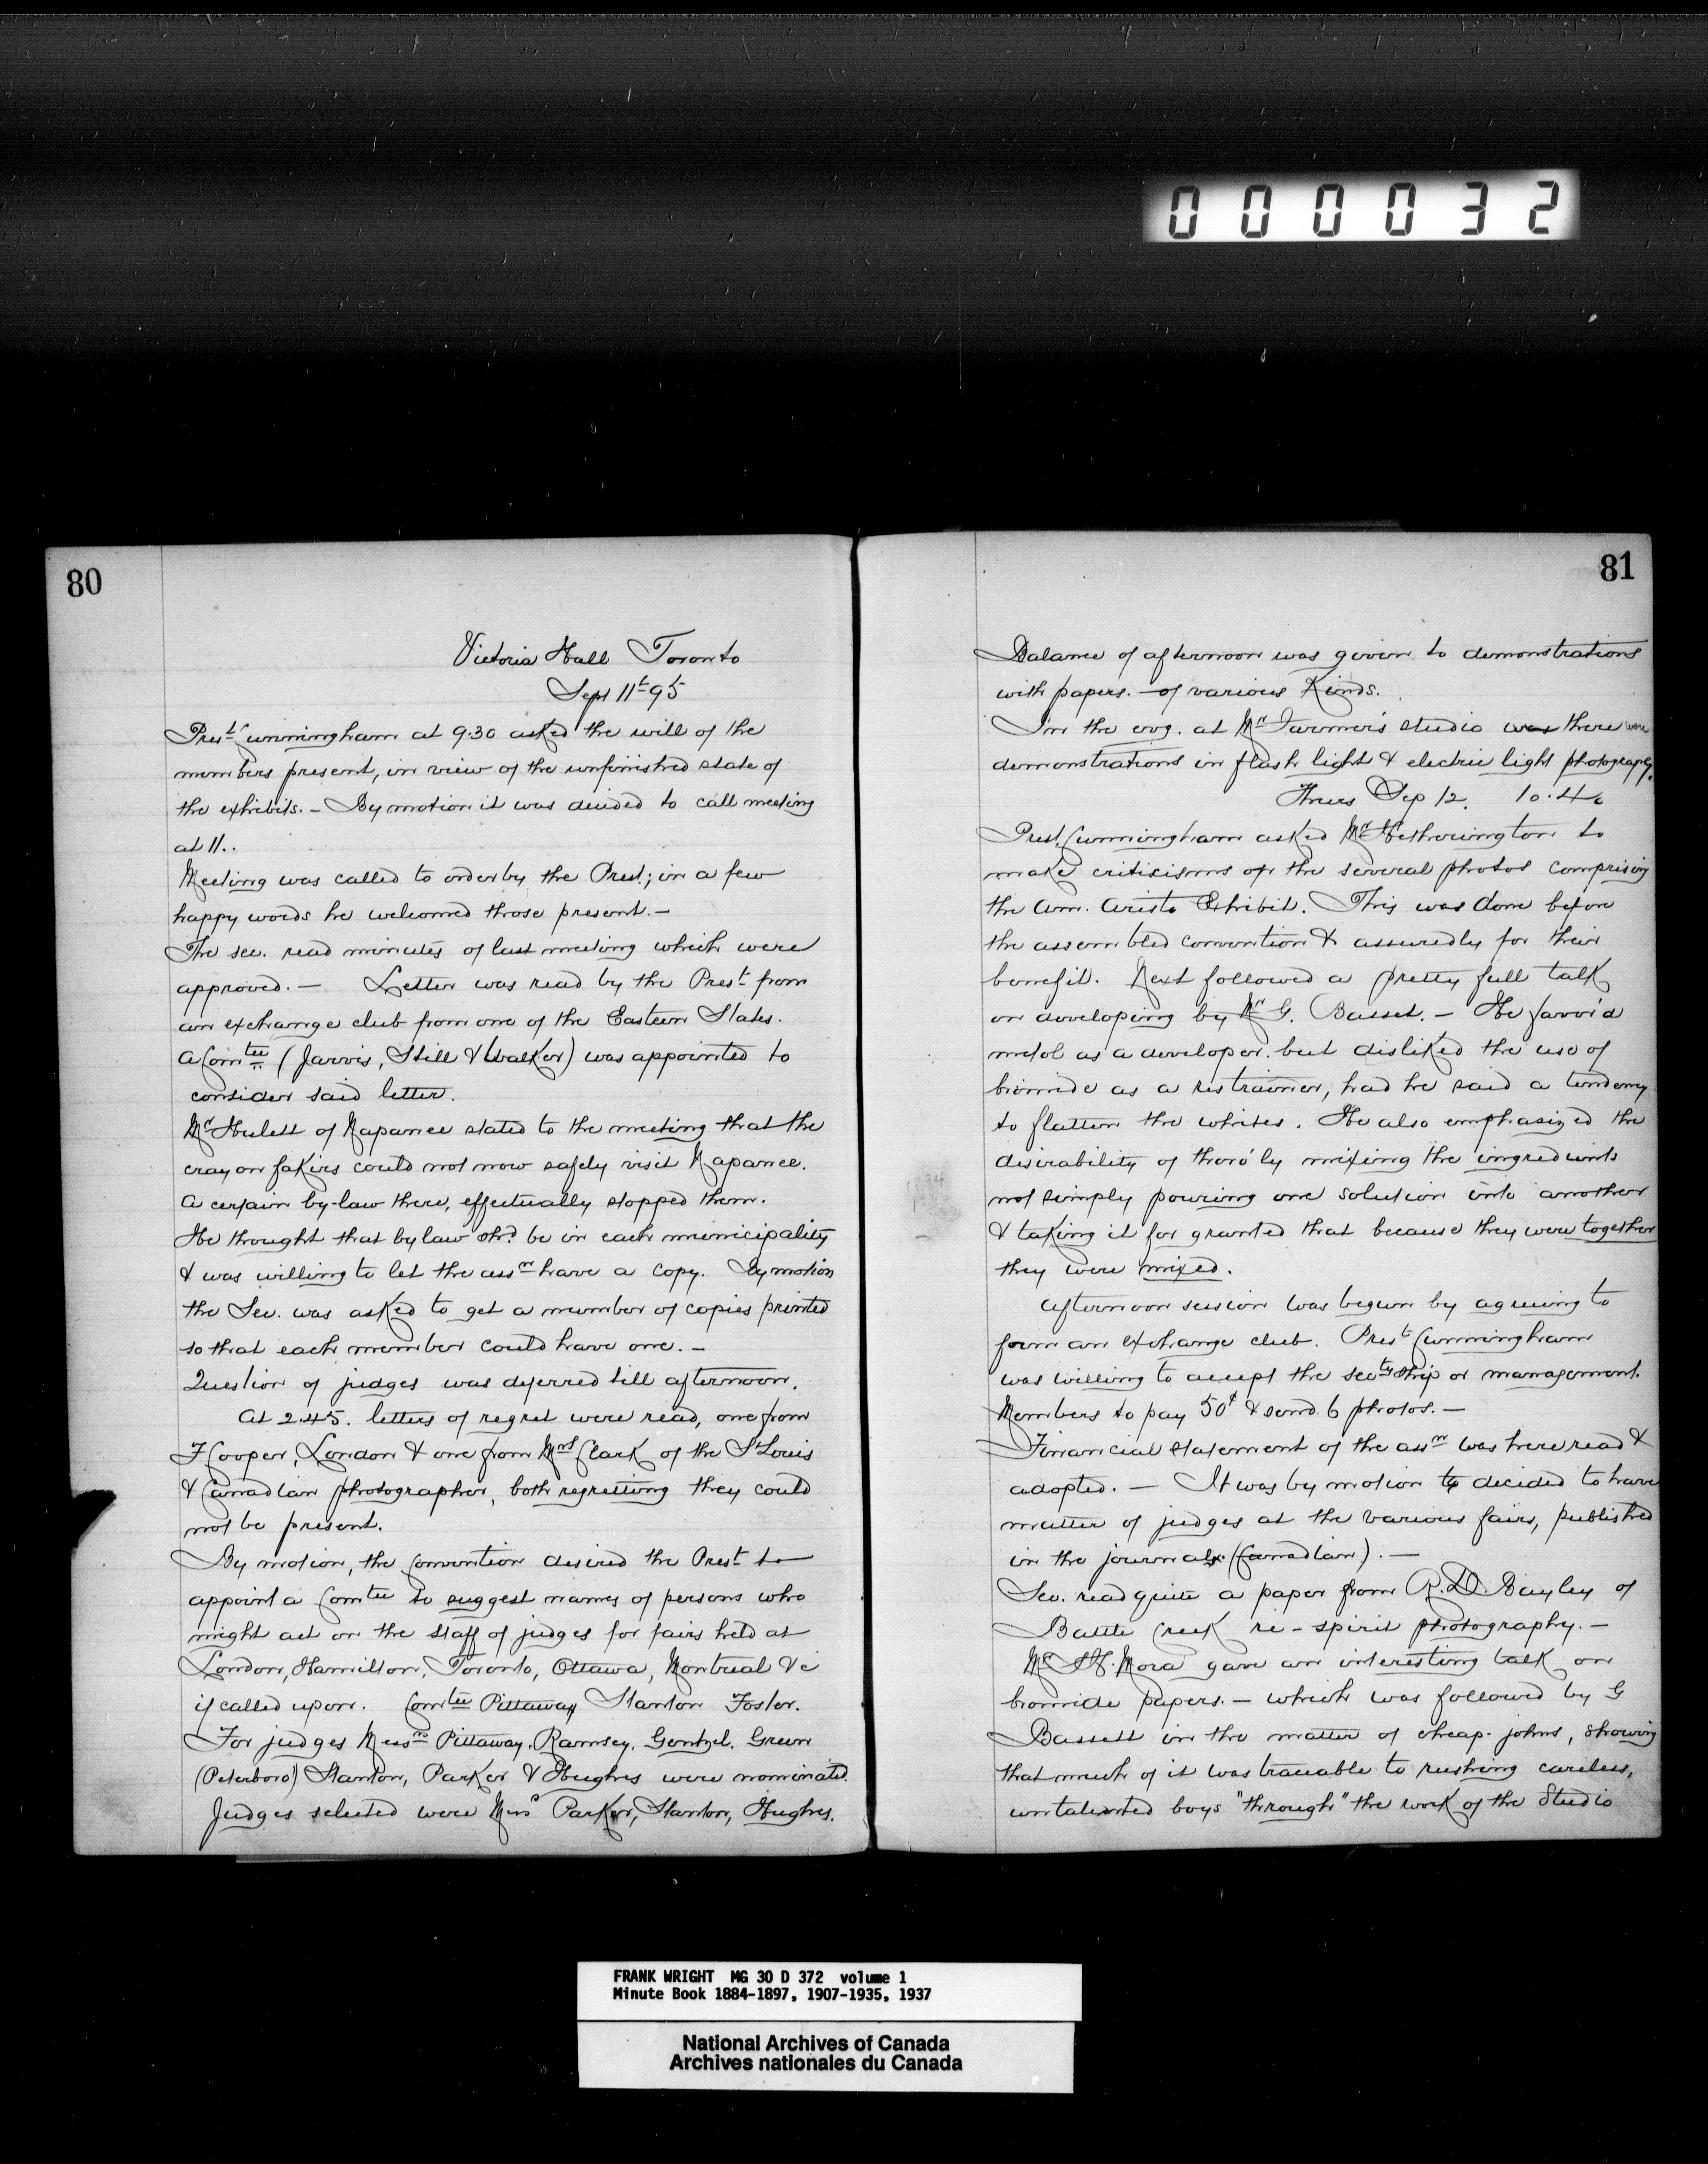 000032
80
Victoria Hall Toronto
Sept 11t 95
Prest Cunningham at 9.30 asked the will of the
members present, in view of the unfinished state of
the exhibits. – By motion it was decided to call meeting
at 11..
Meeting was called to order by the Prest; in a few
happy words he welcomed those present. –
The sec. read minutes of last meeting which were
approved. – Letter was read by the Prest from
an exchange club from one of the Eastern States.
A Comtee (Jarvis, Still & Walker) was appointed to
consider said letter.
Mr Hulett of Napanee stated to the meeting that the
crayon fakirs could not now safely visit Napanee.
A certain by-law there, effectually stopped them.
He thought that bylaw shd be in each municipality
& was willing to let the assn have a copy. By motion
the Sec. was asked to get a number of copies printed
so that each member could have one. –
Question of judges was deferred till afternoon.
At 2.45. letters of regret were read, one from
F Cooper, London & one from Mrs Clark of the St Louis
& Canadian photographer, both regretting they could
not be present.
By motion, the Convention desired the Prest to
appoint a Comtee to suggest names of persons who
might act on the staff of judges for fairs held at
London, Hamilton, Toronto, Ottawa, Montreal &c
if called upon. Comtee Pittaway Stanton Foster.
For judges Messrs Pittaway. Ramsey. Gentzel. Green
(Peterboro') Stanton, Parker & Hughes were nominated.
Judges selected were Mess Parker, Stanton, Hughes.
81
Balance of afternoon was given to demonstrations
with papers. – of various Kinds.
In the evg. at Mr Farmer's studio was there were
demonstrations in flash light & electric light photography.
Thurs Sep 12. 10.40
Prest. Cunningham asked Mr Hetherington to
make criticisms on the several photos comprising
the Am. Aristo Exhibit. This was done before
the assembled convention & assuredly for their
benefit. Next followed a pretty full talk
on developing by Mr G. Basset. – He favor'd
metol as a developer. but disliked the use of
bromide as a restrainer, had he said a tendency
to flatten the whites. He also emphasized the
desirability of thoro'ly mixing the ingredients
not simply pouring one solution into another
& taking it for granted that because they were together
they were mixed.
Afternoon session was begun by agreeing to
form an exchange club. Prest Cunningham
was willing to accept the sectyship or management.
Members to pay 50¢ & send 6 photos. –
Financial statement of the assn was here read &
adopted. – It was by motion to decided to have
matter of judges at the various fairs, published
in the journals. (Canadian). –
Sec. read quite a paper from R. D. Bayley of
Battle Creek re-spirit photography. –
Mr Mora gave an interesting talk on
bromide papers. – which was followed by G
Bassett in the matter of cheap-johns, showing
that much of it was traceable to rushing careless,
untalented boys "through" the work of the Studio
FRANK WRIGHT MG 30 D 372 volume 1
Minute Book 1884-1897, 1907-1935, 1937
National Archives of Canada
Archives nationales du Canada